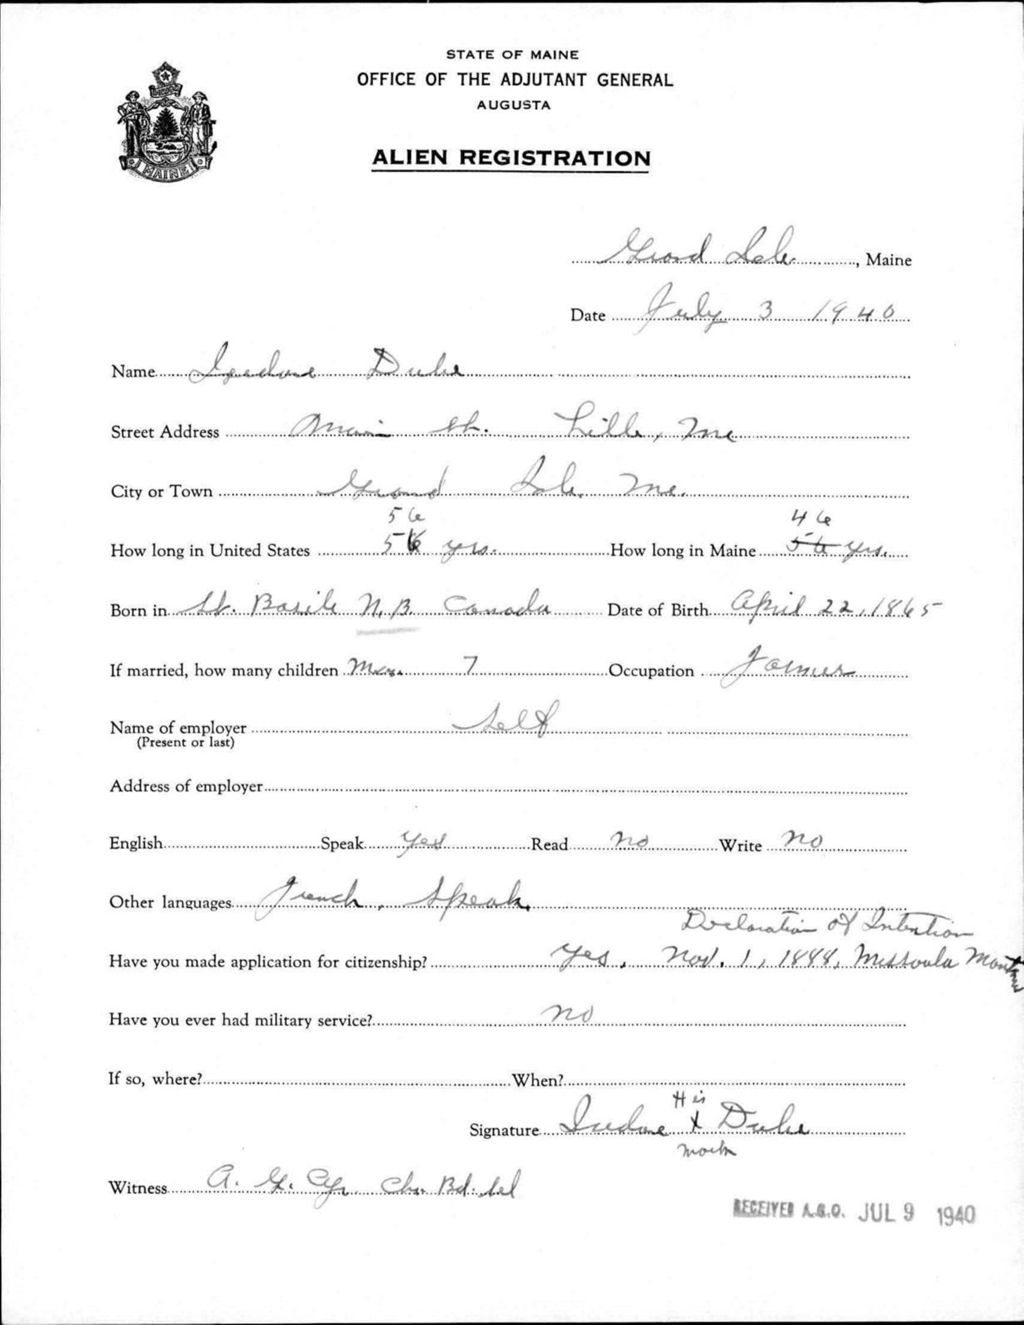 STATE OF MAINE
OFFICE OF THE ADJUTANT GENERAL
AUGUSTA
MAINE
ALIEN REGISTRATION
Grand Isle, Maine
Date July 3 1940
Name Isedore Dube
Street Address Main St. Lille, Me
City or Town Grand Isle. Me.
56 46
How long in United States 56 yrs. How long in Maine 56 yrs.
Born in St. Basile N.B. Canada Date of Birth April 22, 1865
If married, how many children 7 Occupation Farmer
Name of employer Self
(Present or last)
Address of employer
English Speak Yes Read No Write No
Other languages French, Speak.
Declaration of Intention
Have you made application for citizenship? Yes. Nov. 1, 1888, Missoula Mont
Have you ever had military service? No
If so, where? When?
His
Signature Isedore X Dube
mark
Witness A. G. Cyr Ch. Bd. Sel
RECEIVED A.G.O. JUL 9 1940